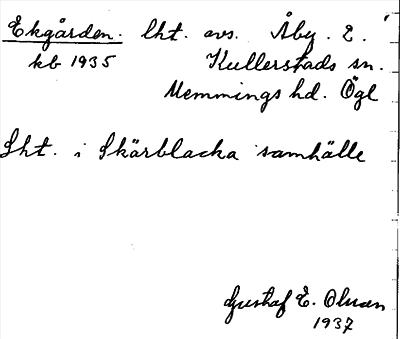 Ekgården. lht. avs. Åby. 2.
kb 1935 Kullerstads sn.
Memmings hd. Ögl
Lht. i Skärblacka samhälle
Gustaf E. Olsson
1937